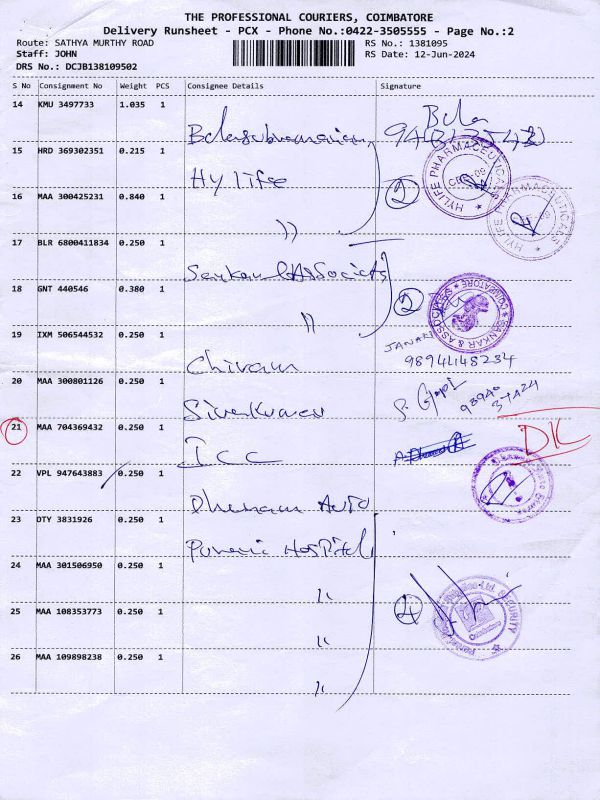 THE PROFESSIONAL COURIERS, COIMBATORE
Delivery Runsheet - PCX - Phone No.:0422-3505555 - Page No.:2
Route: SATHYA MURTHY ROAD
Staff: JOHN
DRS No.: DCJB138109502
RS No.: 1381095
RS Date: 12-Jun-2024
S No Consignment No Weight PCS Consignee Details Signature
14 KMU 3497733 1.035 1 Balasubramaniam Bala
15 HRD 369302351 0.215 1 Hy life
HYLIFE PHARMACEUTICALS
16 MAA 300425231 0.840 1 )) 2
HYLIFE PHARMACEUTICALS
17 BLR 6800411834 0.250 1 Sankar & Associats
18 GNT 440546 0.380 1 )) 2
SANKAR & ASSOCIATES COIMBATORE
19 IXM 506544532 0.250 1 Chivam
JANAKI
9894148234
20 MAA 300801126 0.250 1 Sivakumar
21 MAA 704369432 0.250 1 ICC DK
22 VPL 947643883 0.250 1 Dhanam Auto
23 DTY 3831926 0.250 1 Hospital
24 MAA 301506950 0.250 1 "
25 MAA 108353773 0.250 1 " 4
SECURITY
Coimbatore
26 MAA 109898238 0.250 1 "